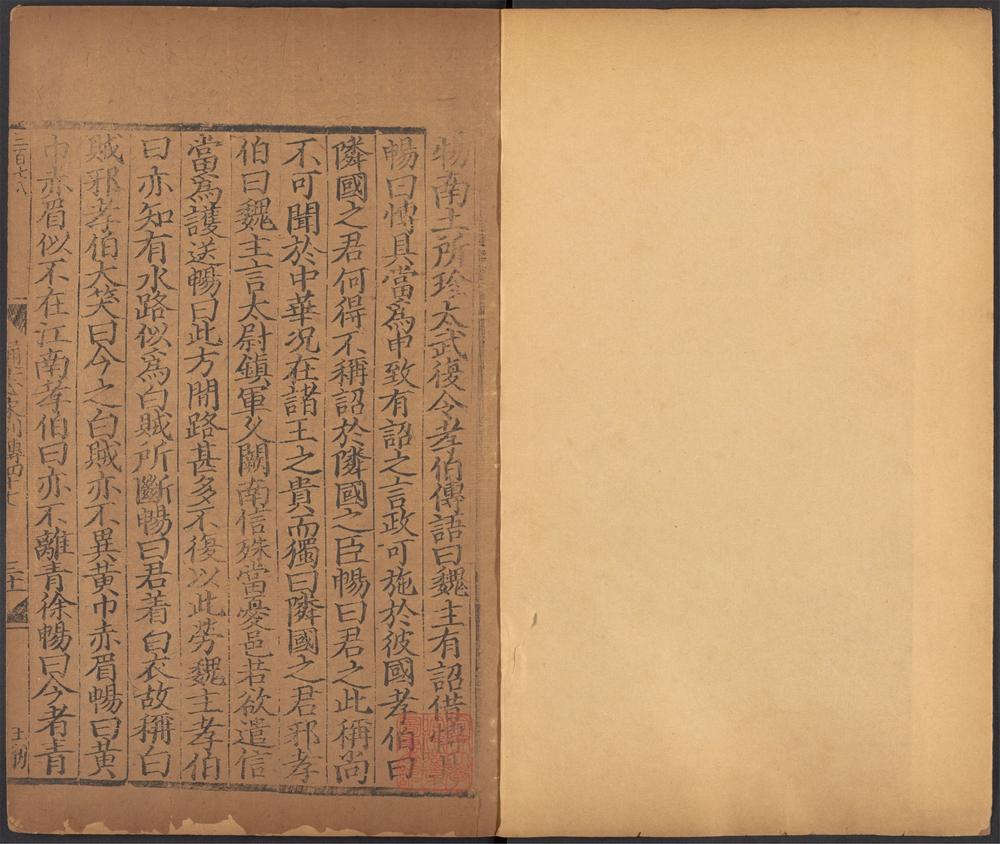 物南土所珍太武復令孝伯傳語曰魏主有詔借博具
暢曰博具當為申致有詔之言政可施於彼國孝伯曰
隣國之君何得不稱詔於隣國之臣暢曰君之此稱尚
不可聞於中華况在諸王之貴而獨曰隣國之君邪孝
伯曰魏主言太尉鎮軍乆闕南信殊當憂邑若欲遣信
當為護送暢曰此方間路甚多不復以此勞魏主孝伯
曰亦知有水路似為白賊所斷暢曰君着白衣故稱白
賊邪孝伯大笑曰今之白賊亦不異黃巾赤眉暢曰黃
巾赤眉似不在江南孝伯曰亦不離青徐暢曰今者青
三百七八
傳四十
三十